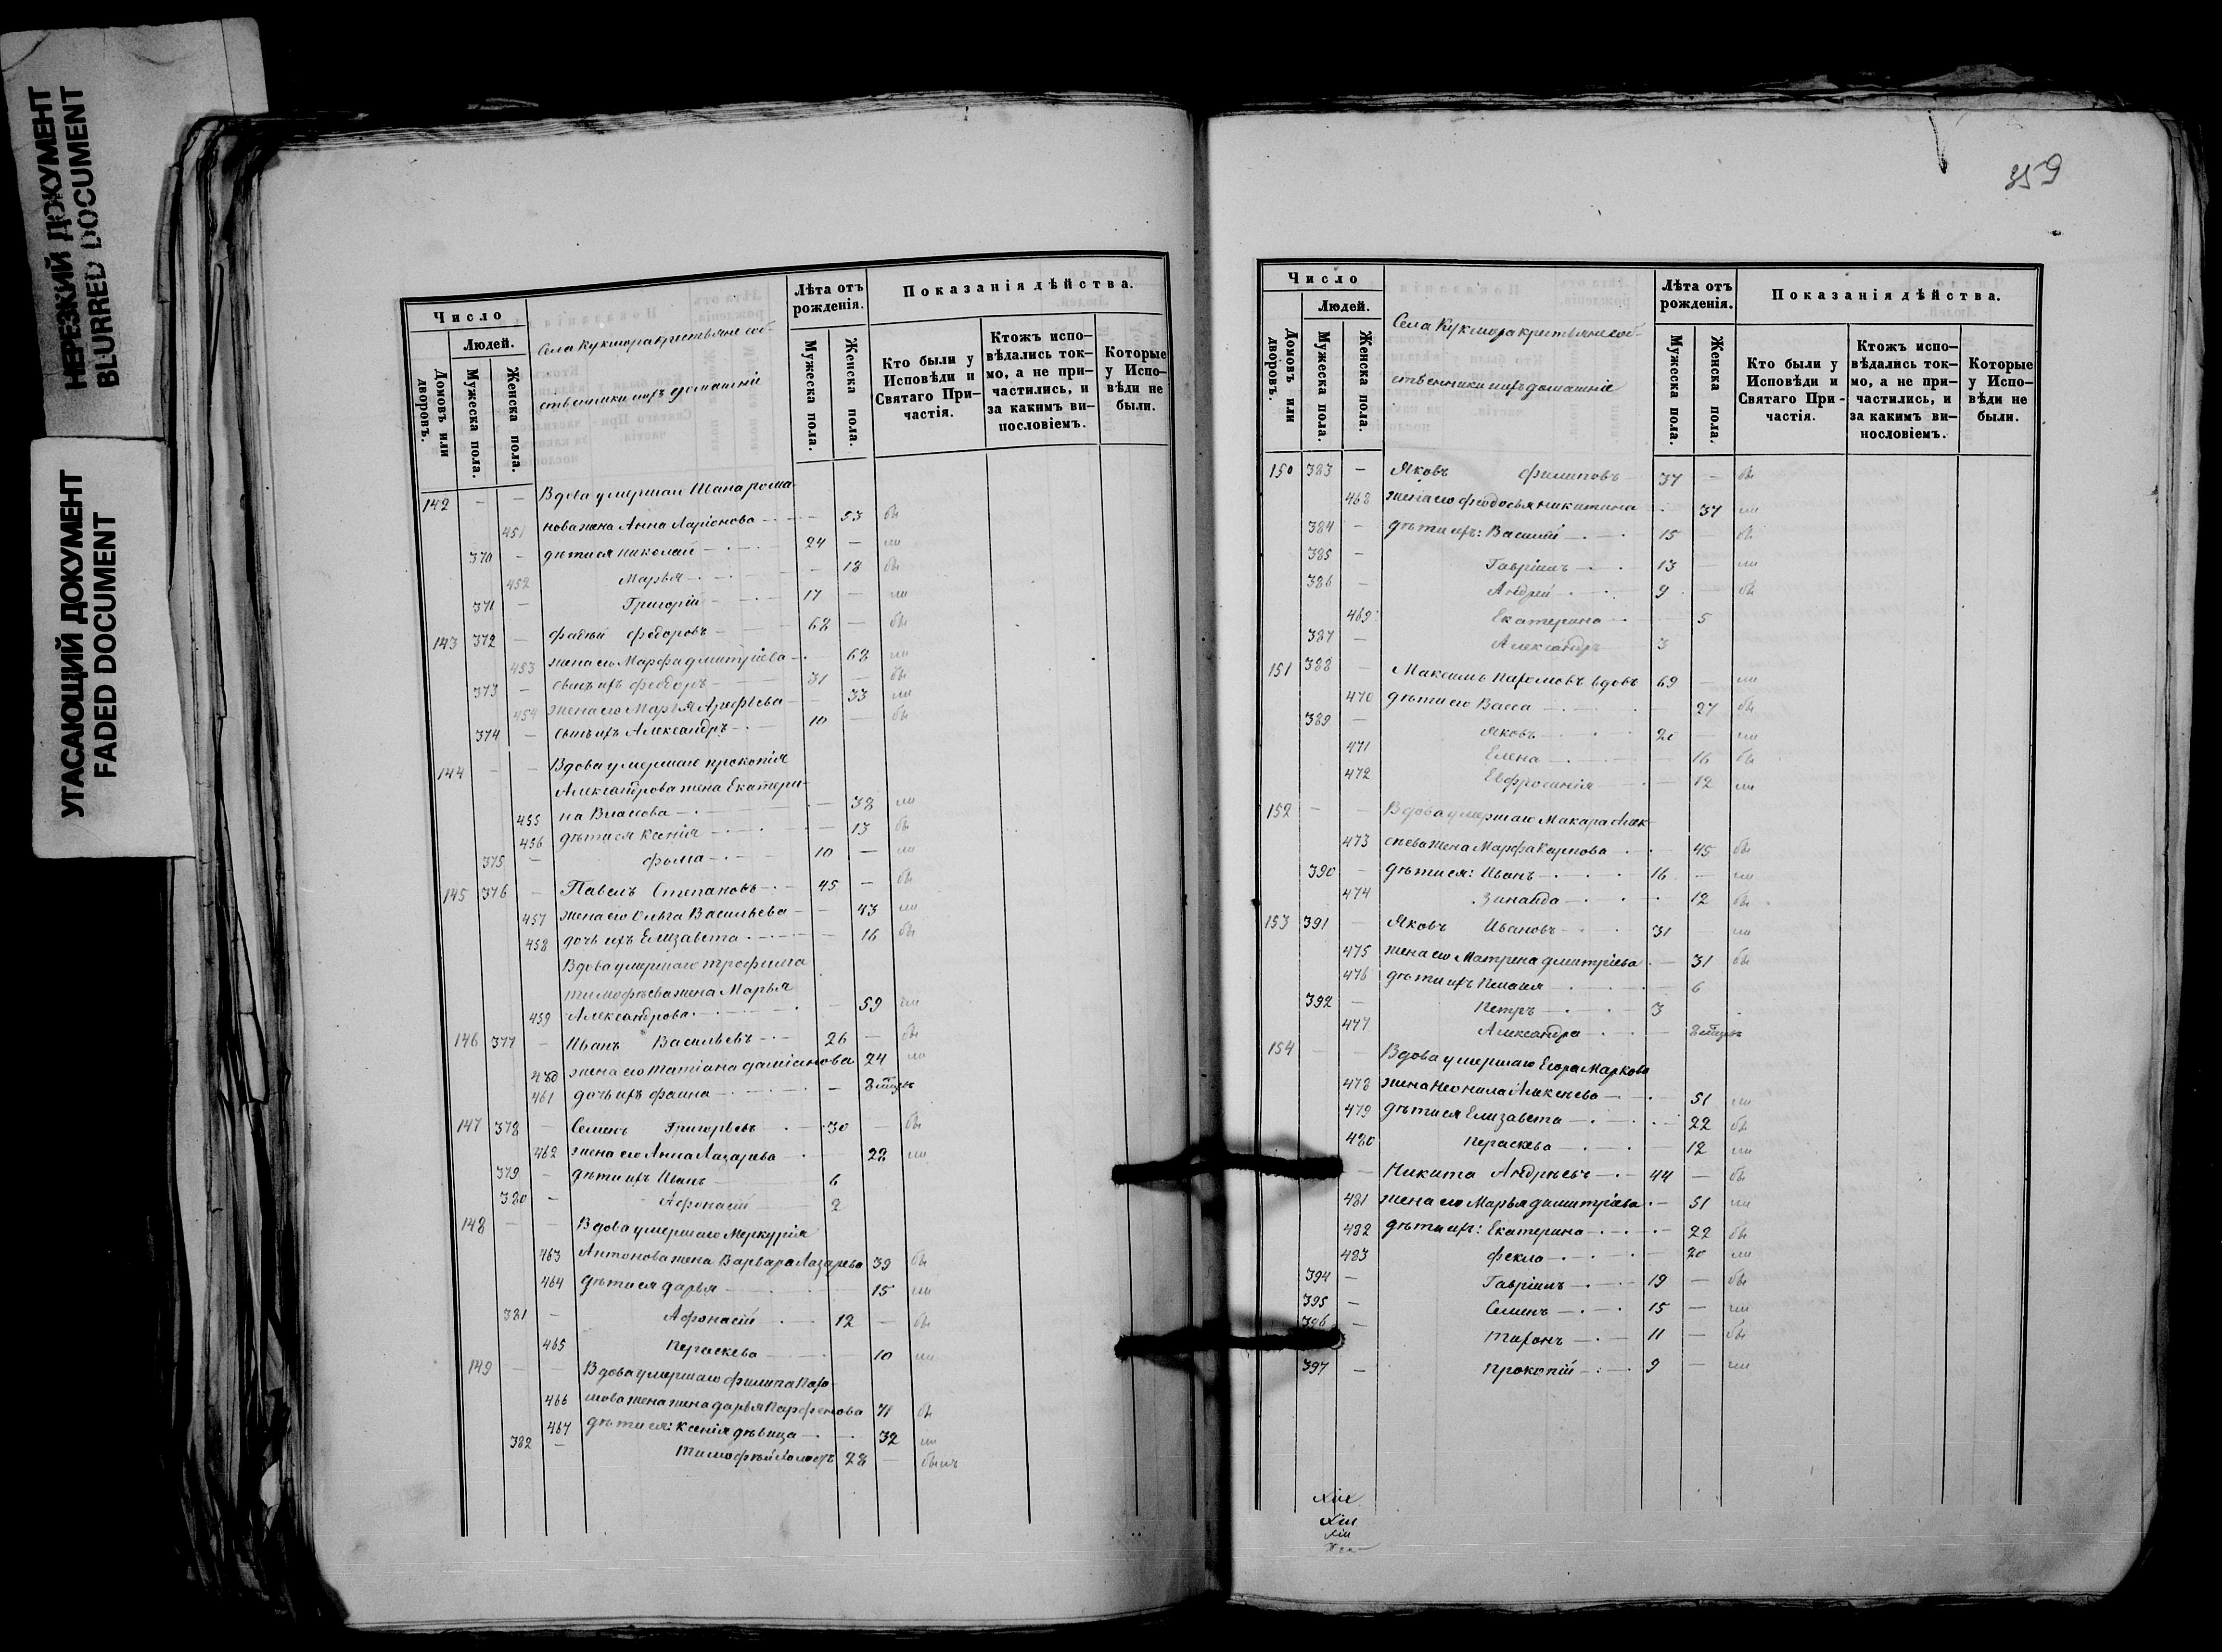 НЕРЕЗКИЙ ДОКУМЕНТ
BLURRED DOCUMENT
УГАСАЮЩИЙ ДОКУМЕНТ
FADED DOCUMENT
Число
Людей.
Домовъ или дворовъ.
Мужеска пола.
Женска пола.
Села Кукмора крестьяне соб-
ственники и ихъ домашніе
Лѣта отъ рожденія.
Мужеска пола.
Женска пола.
Показанія дѣйства.
Кто были у Исповѣди и Святаго При-частія.
Ктожъ испо-вѣдались ток-мо, а не при-частились, и за какимъ ви-нословіемъ.
Которые у Испо-вѣди не были.
142 — — Вдова умершаго Ивана Рома-
451 нова жена Анна Ларіонова — 53 бы
370 — дѣти ея Николай 24 — ли
452 Марья — 18 бы
371 — Григорій 17 — ли
143 372 — Фадѣй Ѳедоровъ 68 — бы
453 жена его Марѳа Дмитріева — 68 ли
373 — сынъ ихъ Ѳеодоръ 31 — бы
454 жена его Марья Арефьева — 33 ли
374 — сынъ ихъ Александръ 10 — бы
144 — — Вдова умершаго Прокопія
Александрова жена Екатери-
455 на Власова — 38 ли
456 дѣти ея Ксенія — 13 бы
375 — Фома 10 — ли
145 376 — Павелъ Степановъ 45 — бы
457 жена его Ольга Васильева — 43 ли
458 дочь ихъ Елизавета 16 бы
Вдова умершаго Трофима
Тимофѣева жена Марья
459 Александрова — 59 ли
146 377 — Иванъ Васильевъ 26 — бы
460 жена его Татіана Даміанова 24 ли
461 дочь ихъ Фаина —
147 378 — Семенъ Григорьевъ 30 — бы
462 жена его Анна Лазарева — 28 ли
379 — дѣти ихъ Иванъ 6
380 — Афонасій 2
148 — — Вдова умершаго Меркурія
463 Антонова жена Варвара Лазарева 39 бы
464 дѣти ея Дарья — 15 ли
381 — Афонасій 12 — бы
465 Пераскева — 10 ли
149 — — Вдова умершаго Филипа Пахо-
466 мова жена жена Дарья Парфенова 71 бы
467 дѣти ея: Ксенія дѣвица — 32 ли
382 — Тимофѣй холостъ 28 — былъ
359
Число
Людей.
Домовъ или дворовъ.
Мужеска пола.
Женска пола.
Села Кукмора крестьяне соб-
ственники и ихъ домашніе
Лѣта отъ рожденія.
Мужеска пола.
Женска пола.
Показанія дѣйства.
Кто были у Исповѣди и Святаго При-частія.
Ктожъ испо-вѣдались ток-мо, а не при-частились, и за какимъ ви-нословіемъ.
Которые у Испо-вѣди не были.
150 383 — Яковъ Филиповъ 37 — бы
468 жена его Феодосья Никитина 37 ли
384 — дѣти ихъ: Василій 15 — бы
385 — Гавріилъ 13 — ли
386 — Андрей 9 — бы
469 Екатерина 5
387 — Александръ 3
151 388 — Максимъ Пахомовъ вдовъ 69 — ли
470 дѣти его Васса 27 бы
389 — Яковъ 20 — ли
471 Елена — 16 бы
472 Евфросинія — 12 ли
152 — — Вдова умершаго Макара Алек-
473 сѣева жена Марѳа Карпова — 45 бы
390 — дѣти ея: Иванъ 16 — ли
474 Зинаида 12 бы
153 391 — Яковъ Ивановъ 31 ли
475 жена его Матрена Дмитріева — 31 бы
476 дѣти ихъ 6
392 — Петръ 3
477 Александра —
154 — — Вдова умершаго Егора Маркова
478 жена Неонила Алексѣева — 51 ли
479 дѣти ея Елизавета — 22 бы
480 Пераскева — 12 ли
— Никита Андрѣевъ 44 — бы
481 жена его Марья Димитріева — 51 ли
482 дѣти ихъ: Екатерина — 22 бы
483 Фекла — 20 ли
394 — Гавріилъ 19 — бы
395 — Семенъ 15 — ли
396 — Тихонъ 11 — бы
397 — Прокопій 9 — ли